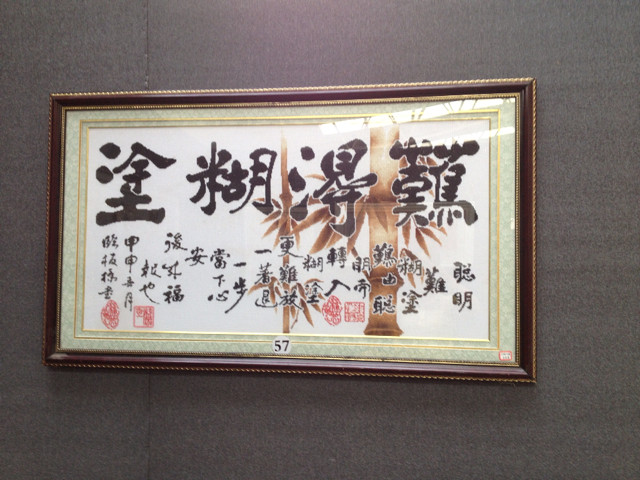 難得糊塗
聰明
難
糊塗
難由聰
明而
轉入
糊塗
更難放
一著退
一步
當下心
安
後來福
報也
甲申五月
臨板橋書
57